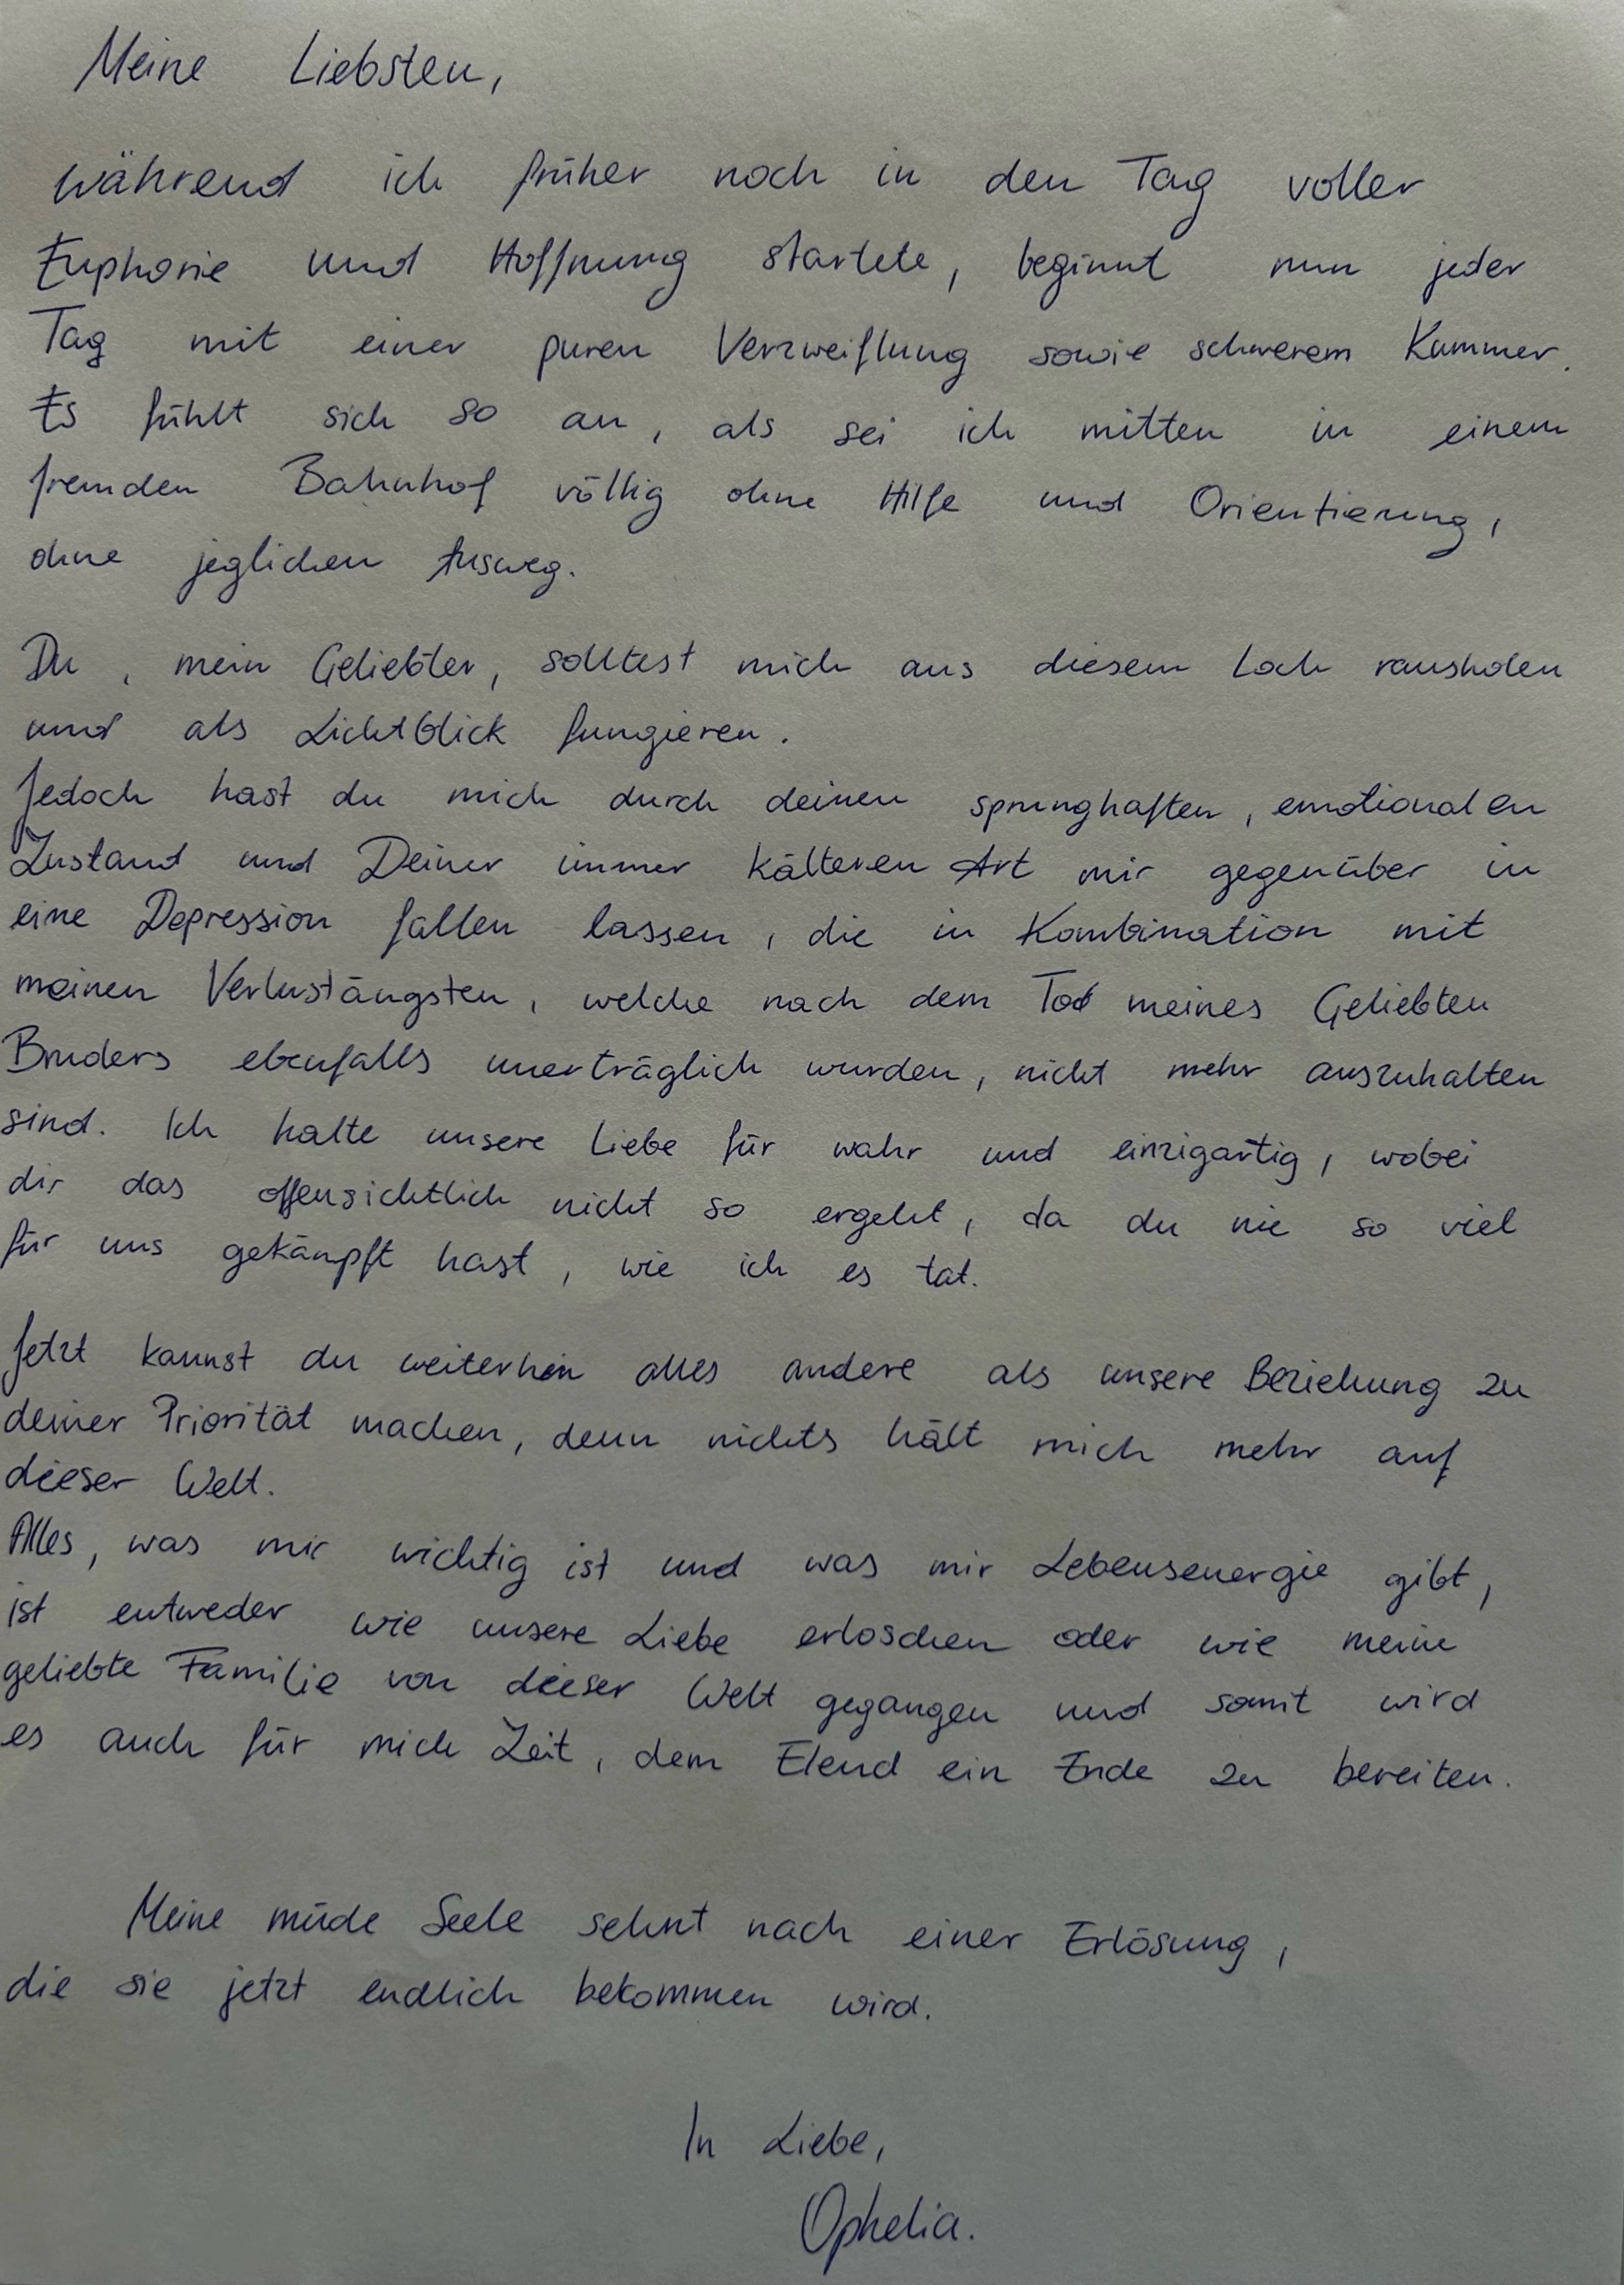 Meine Liebsten,
während ich früher noch in den Tag voller
Euphorie und Hoffnung startete, beginnt nun jeder
Tag mit einer puren Verzweiflung sowie schwerem Kummer.
Es fühlt sich so an, als sei ich mitten in einem
fremden Bahnhof völlig ohne Hilfe und Orientierung,
ohne jeglichen Ausweg.
Du, mein Geliebter, solltest mich aus diesem Loch rausholen
und als Lichtblick fungieren.
Jedoch hast du mich durch deinen sprunghaften, emotionalen
Zustand und Deiner immer kälteren Art mir gegenüber in
eine Depression fallen lassen, die in Kombination mit
meinen Verlustängsten, welche nach dem Tod meines Geliebten
Bruders ebenfalls unerträglich wurden, nicht mehr auszuhalten
sind. Ich halte unsere Liebe für wahr und einzigartig, wobei
dir das offensichtlich nicht so ergeht, da du nie so viel
für uns gekämpft hast, wie ich es tat.
Jetzt kannst du weiterhin alles andere als unsere Beziehung zu
deiner Priorität machen, denn nichts hält mich mehr auf
dieser Welt.
Alles, was mir wichtig ist und was mir Lebensenergie gibt,
ist entweder wie unsere Liebe erloschen oder wie meine
geliebte Familie von dieser Welt gegangen und somit wird
es auch für mich Zeit, dem Elend ein Ende zu bereiten.
Meine müde Seele sehnt nach einer Erlösung,
die sie jetzt endlich bekommen wird.
In Liebe,
Ophelia.